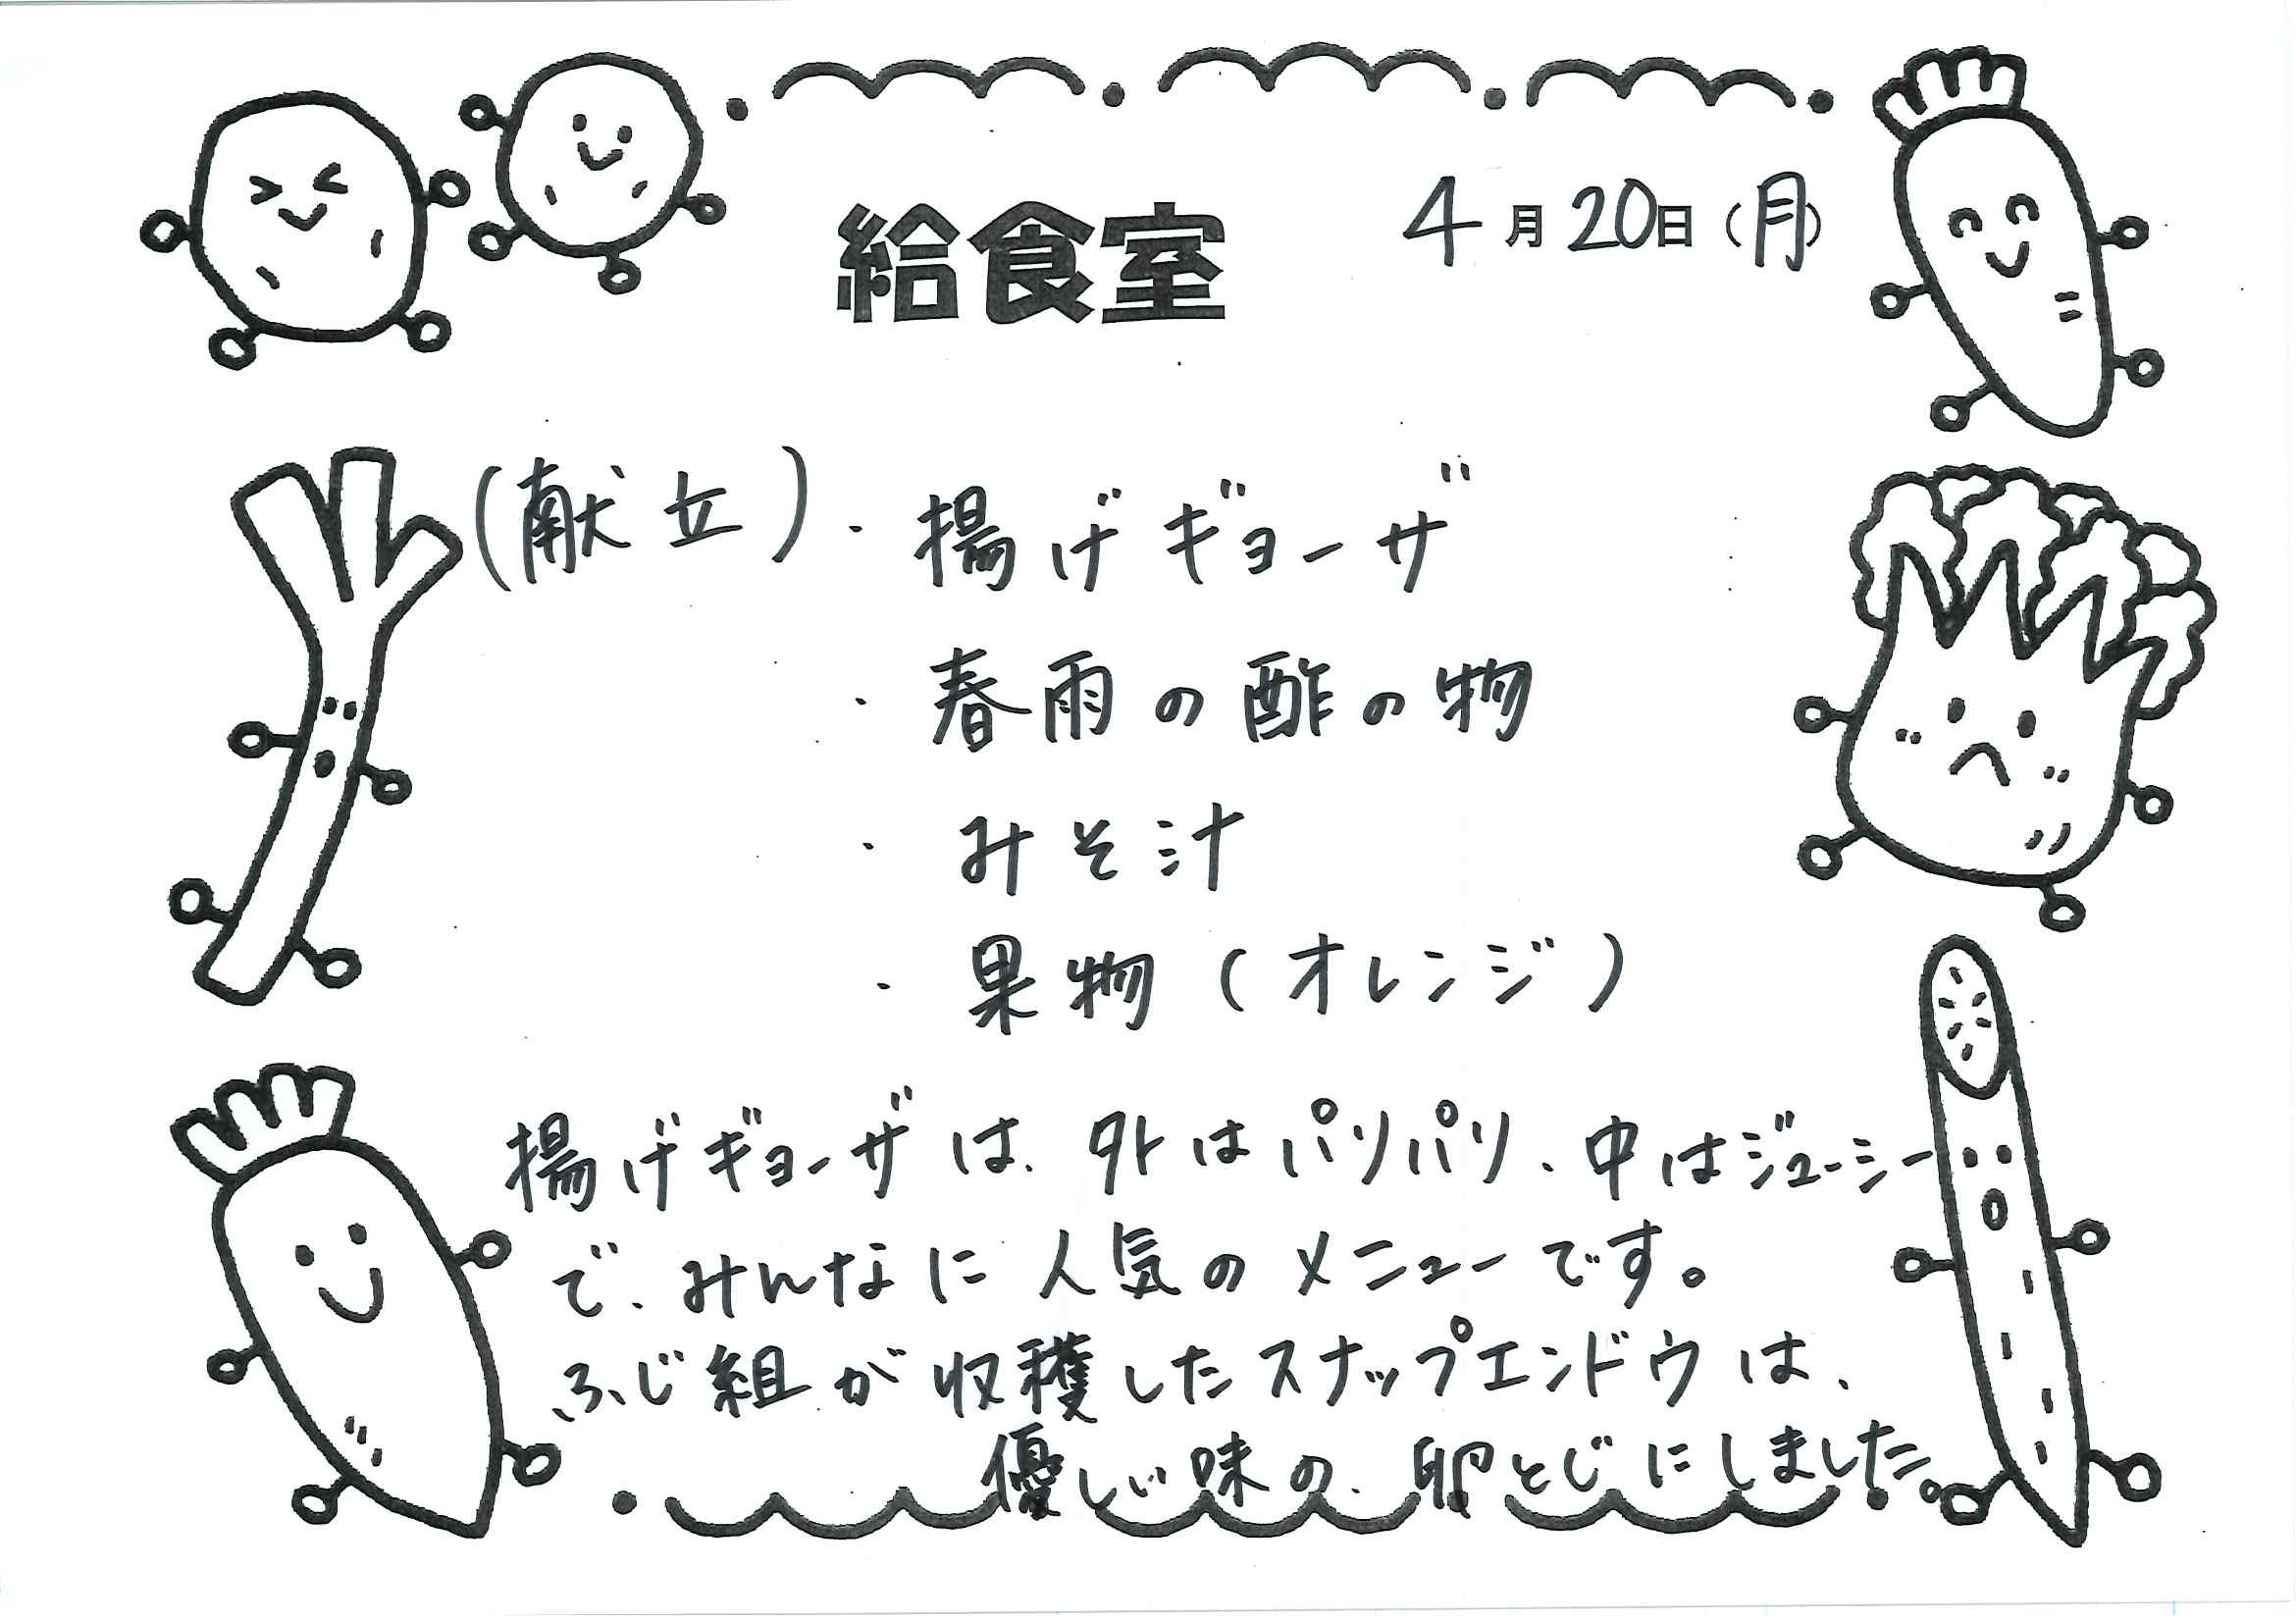 給食室
4月20日(月)
(献立)・揚げギョーザ
・春雨の酢の物
・みそ汁
・果物(オレンジ)
揚げギョーザは、外はパリパリ、中はジューシー
で、みんなに人気のメニューです。
ふじ組が収穫したスナップエンドウは、
優しい味の、卵とじにしました。